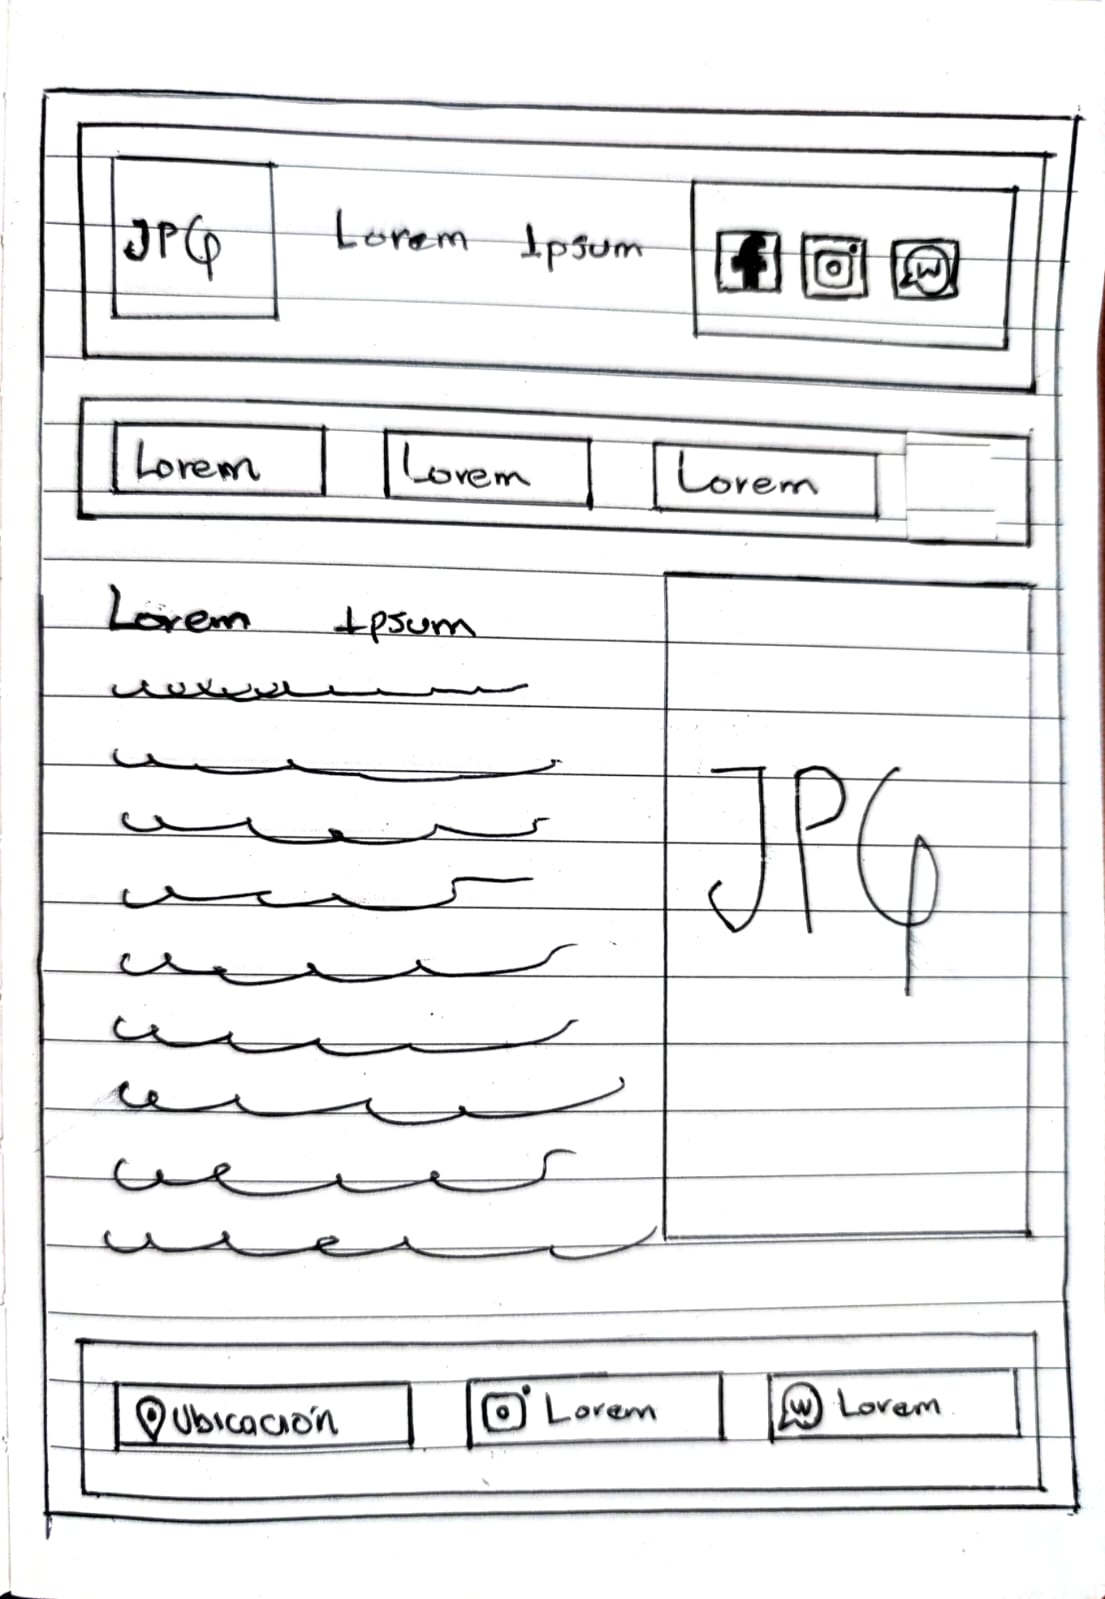 JPG
Lorem Ipsum
Lorem
Lorem
Lorem
Lorem Ipsum
JPG
Ubicación
Lorem
Lorem